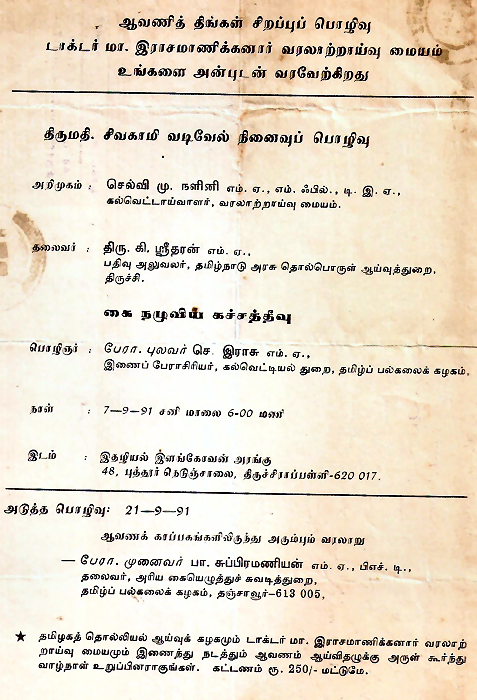 ஆவணித் திங்கள் சிறப்புப் பொழிவு
டாக்டர் மா. இராசமாணிக்கனார் வரலாற்றாய்வு மையம்
உங்களை அன்புடன் வரவேற்கிறது
திருமதி. சிவகாமி வடிவேல் நினைவுப் பொழிவு
அறிமுகம் : செல்வி மு. நளினி எம். ஏ., எம். ஃபில்., டி. இ. ஏ.,
கல்வெட்டாய்வாளர், வரலாற்றாய்வு மையம்.
தலைவர் : திரு. கி. ஸ்ரீதரன் எம். ஏ.,
பதிவு அலுவலர், தமிழ்நாடு அரசு தொல்பொருள் ஆய்வுத்துறை,
திருச்சி.
கை நழுவிய கச்சத்தீவு
பொழிஞர் : பேரா. புலவர் செ. இராசு எம். ஏ.,
இணைப் பேராசிரியர், கல்வெட்டியல் துறை, தமிழ்ப் பல்கலைக் கழகம்.
நாள் : 7—9—91 சனி மாலை 6-00 மணி
இடம் : இதழியல் இளங்கோவன் அரங்கு
48, புத்தூர் நெடுஞ்சாலை, திருச்சிராப்பள்ளி-620 017.
அடுத்த பொழிவு: 21—9—91
ஆவணக் காப்பகங்களிலிருந்து அரும்பும் வரலாறு
— பேரா. முனைவர் பா. சுப்பிரமணியன் எம். ஏ., பிஎச். டி.,
தலைவர், அரிய கையெழுத்துச் சுவடித்துறை,
தமிழ்ப் பல்கலைக் கழகம், தஞ்சாவூர்—613 005,
★ தமிழகத் தொல்லியல் ஆய்வுக் கழகமும் டாக்டர் மா. இராசமாணிக்கனார் வரலாற்
றாய்வு மையமும் இணைந்து நடத்தும் ஆவணம் ஆய்விதழுக்கு அருள் கூர்ந்து
வாழ்நாள் உறுப்பினராகுங்கள். கட்டணம் ரூ. 250/- மட்டுமே.